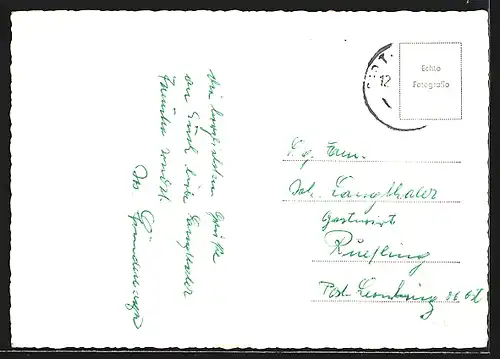 Echte
Fotografie
12
Die herzlichsten Grüße
an Euch liebe Langthaler
Familie sendet
Fam.
Joh. Langthaler
Gastwirt
Rufling
Post Leonding